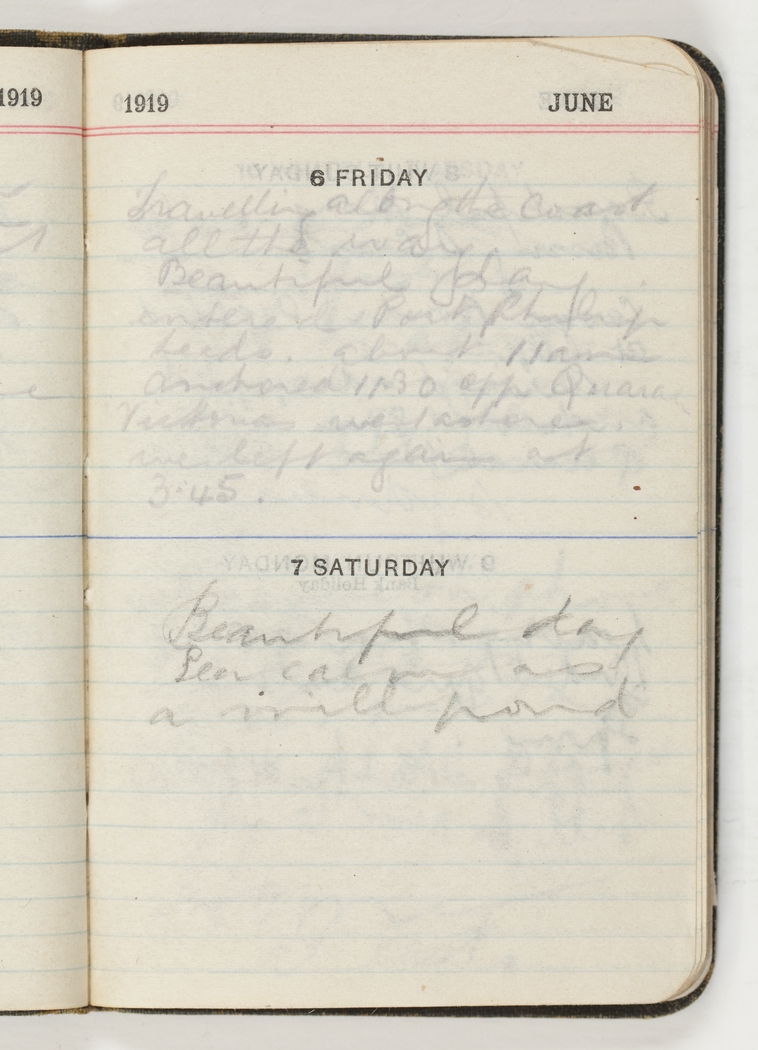 1919
1919 JUNE
6 FRIDAY
Travelling along the Coast
all the way.
Beautiful day
entered Port Phillip
heads. about 11 am
anchored 11.30 opp Quaran
Victorias went ashore.
we left again at
3.45.
7 SATURDAY
Beautiful day
Sea calm as
a mill pond